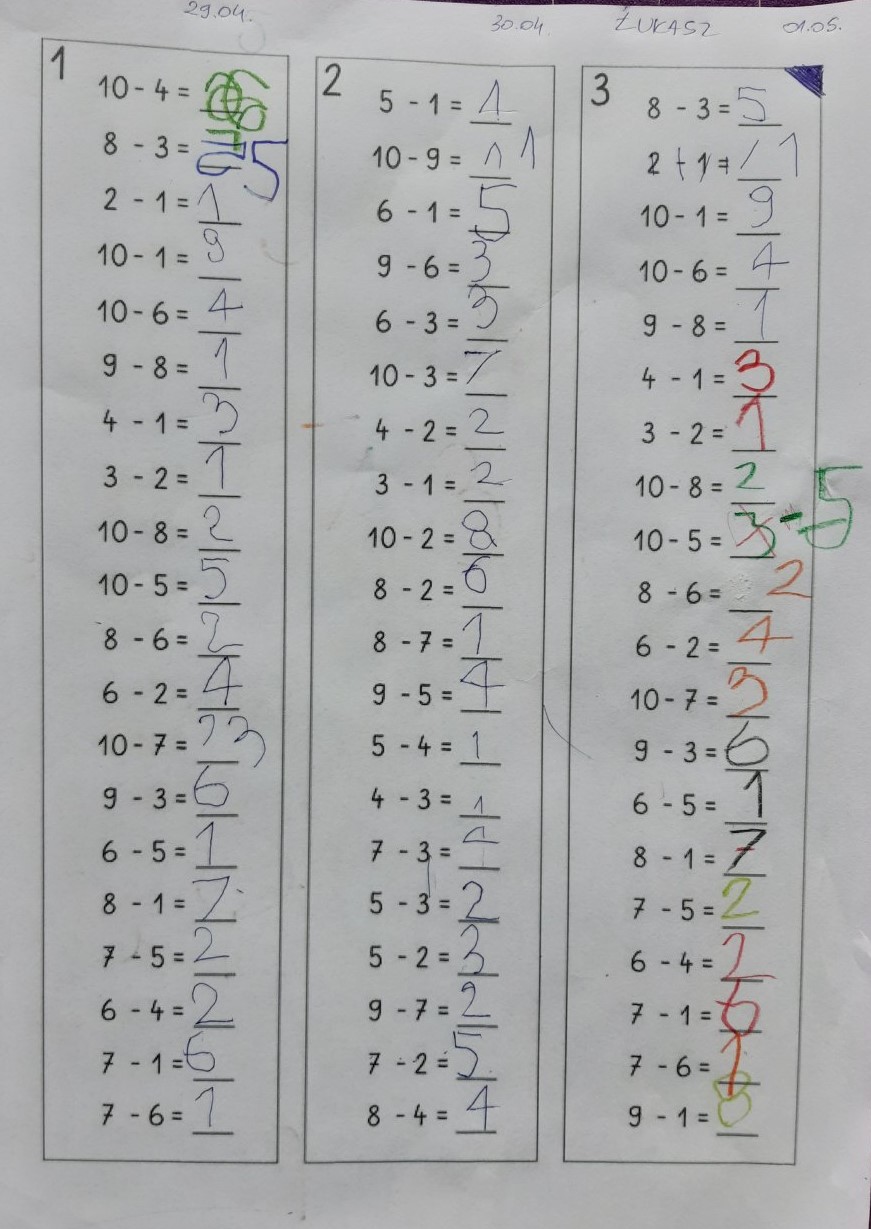 29.04.
30.04. ŁUKASZ 01.05.
1
10 - 4 = 6
8 - 3 = 5
2 - 1 = 1
10 - 1 = 9
10 - 6 = 4
9 - 8 = 1
4 - 1 = 3
3 - 2 = 1
10 - 8 = 2
10 - 5 = 5
8 - 6 = 2
6 - 2 = 4
10 - 7 = 3
9 - 3 = 6
6 - 5 = 1
8 - 1 = 7
7 - 5 = 2
6 - 4 = 2
7 - 1 = 6
7 - 6 = 1
2
5 - 1 = 1
10 - 9 = 1 1
6 - 1 = 5
9 - 6 = 3
6 - 3 = 3
10 - 3 = 7
4 - 2 = 2
3 - 1 = 2
10 - 2 = 8
8 - 2 = 6
8 - 7 = 1
9 - 5 = 4
5 - 4 = 1
4 - 3 = 1
7 - 3 =
5 - 3 = 2
5 - 2 = 3
9 - 7 = 2
7 - 2 = 5
8 - 4 = 4
3
8 - 3 = 5
2 - 1 = 1 1
10 - 1 = 9
10 - 6 = 4
9 - 8 = 1
4 - 1 = 3
3 - 2 = 1
10 - 8 = 2
10 - 5 = 3 - 5
8 - 6 = 2
6 - 2 = 4
10 - 7 = 3
9 - 3 = 6
6 - 5 = 1
8 - 1 = 7
7 - 5 = 2
6 - 4 = 2
7 - 1 = 6
7 - 6 = 1
9 - 1 = 8